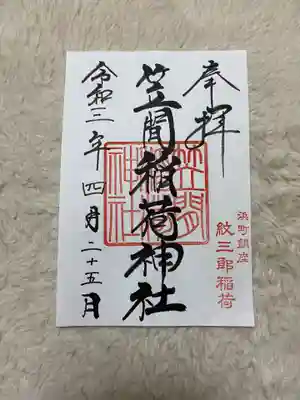 奉拝
浜町鎮座
紋三郎稲荷
笠間稲荷神社
笠間
稲荷
神社
令和三年四月二十五日